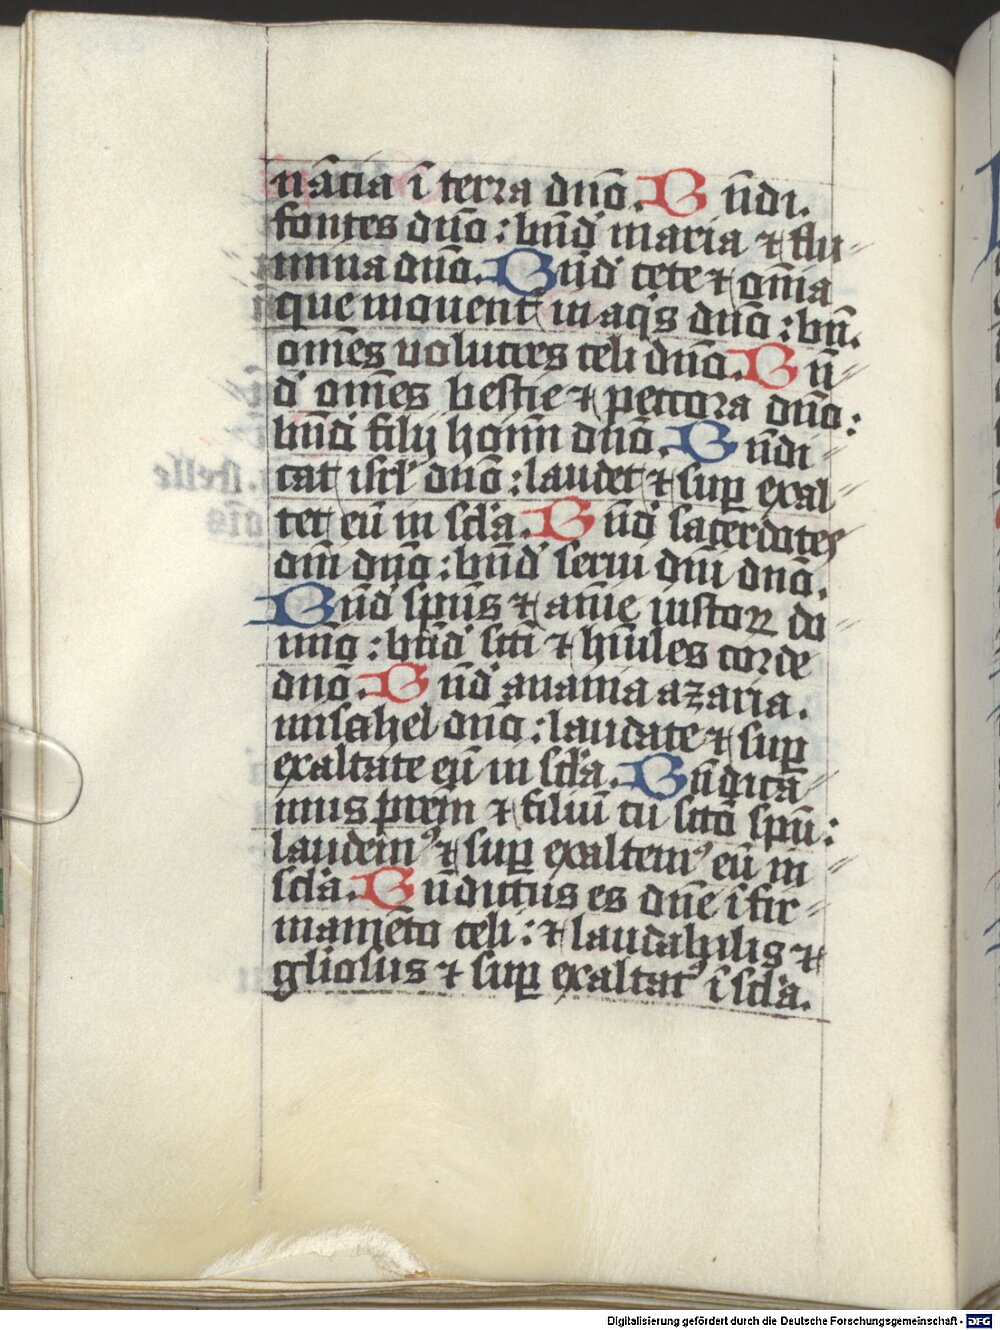 nãtia ĩ terra dnõ. B ñdi.
fontes dnõ : bñd' maria ⁊ flu
mina dnõ. Bñd' cete ⁊ om̃ia
que mouent᷑ in aq̾s dnõ : bñ.
om̃es volucres celi dnõ. B ñ
d' om̃es bestie ⁊ peccora dnõ :
bñd' filij homĩ dnõ. B ñdi
cat isrl' dnõ : laudet ⁊ suꝑ exal
tet eũ in scl'a. B ñd' sacerdotes
dñi dnõ : bñd' serui dñi dnõ.
Bñd' spũs ⁊ anĩe iustoꝝ do
mĩo : bñd' scti ⁊ hũiles corde
dnõ. B ñd' anania azaria.
misahel dnõ : laudate ⁊ suꝑ
exaltate eũ in scl'a. Bñdicã
mus prem̃ ⁊ filiũ cũ sctõ spũ :
laudemꝰ ⁊ suꝑ exaltemꝰ eũ in
scl'a. B ñdictus es dñe ĩ fir
mamẽto celi : ⁊ laudabilis ⁊
gl'iosus ⁊ suꝑ exaltatꝰ ĩ scl'a.
Digitalisierung gefördert durch die Deutsche Forschungsgemeinschaft - DFG